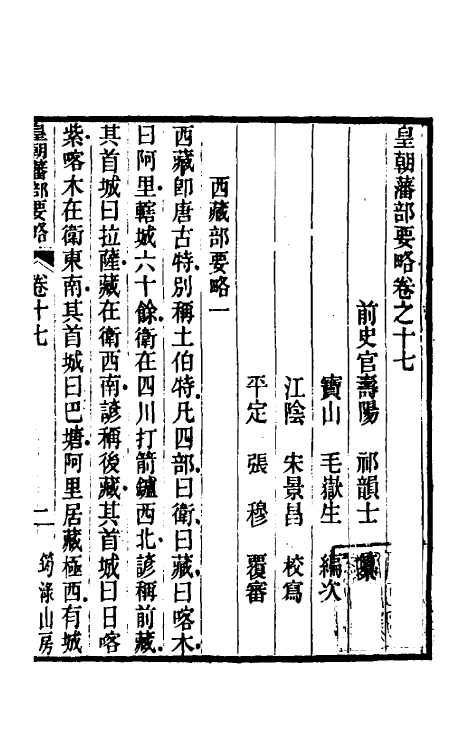 皇朝藩部要略卷之十七
前史官壽陽　祁韻士　纂
寶山　毛嶽生　編次
江陰　宋景昌　校寫
平定　張穆　覆審
西藏部要略一
西藏卽唐古特別稱土伯特凡四部曰衛曰藏曰喀木
曰阿里轄城六十餘衛在四川打箭鑪西北諺稱前藏
其首城曰拉薩藏在衛西南諺稱後藏其首城曰日喀
紫喀木在衛東南其首城曰巴塘阿里居藏極西有城
皇朝藩部要略　卷十七　一　筠淥山房